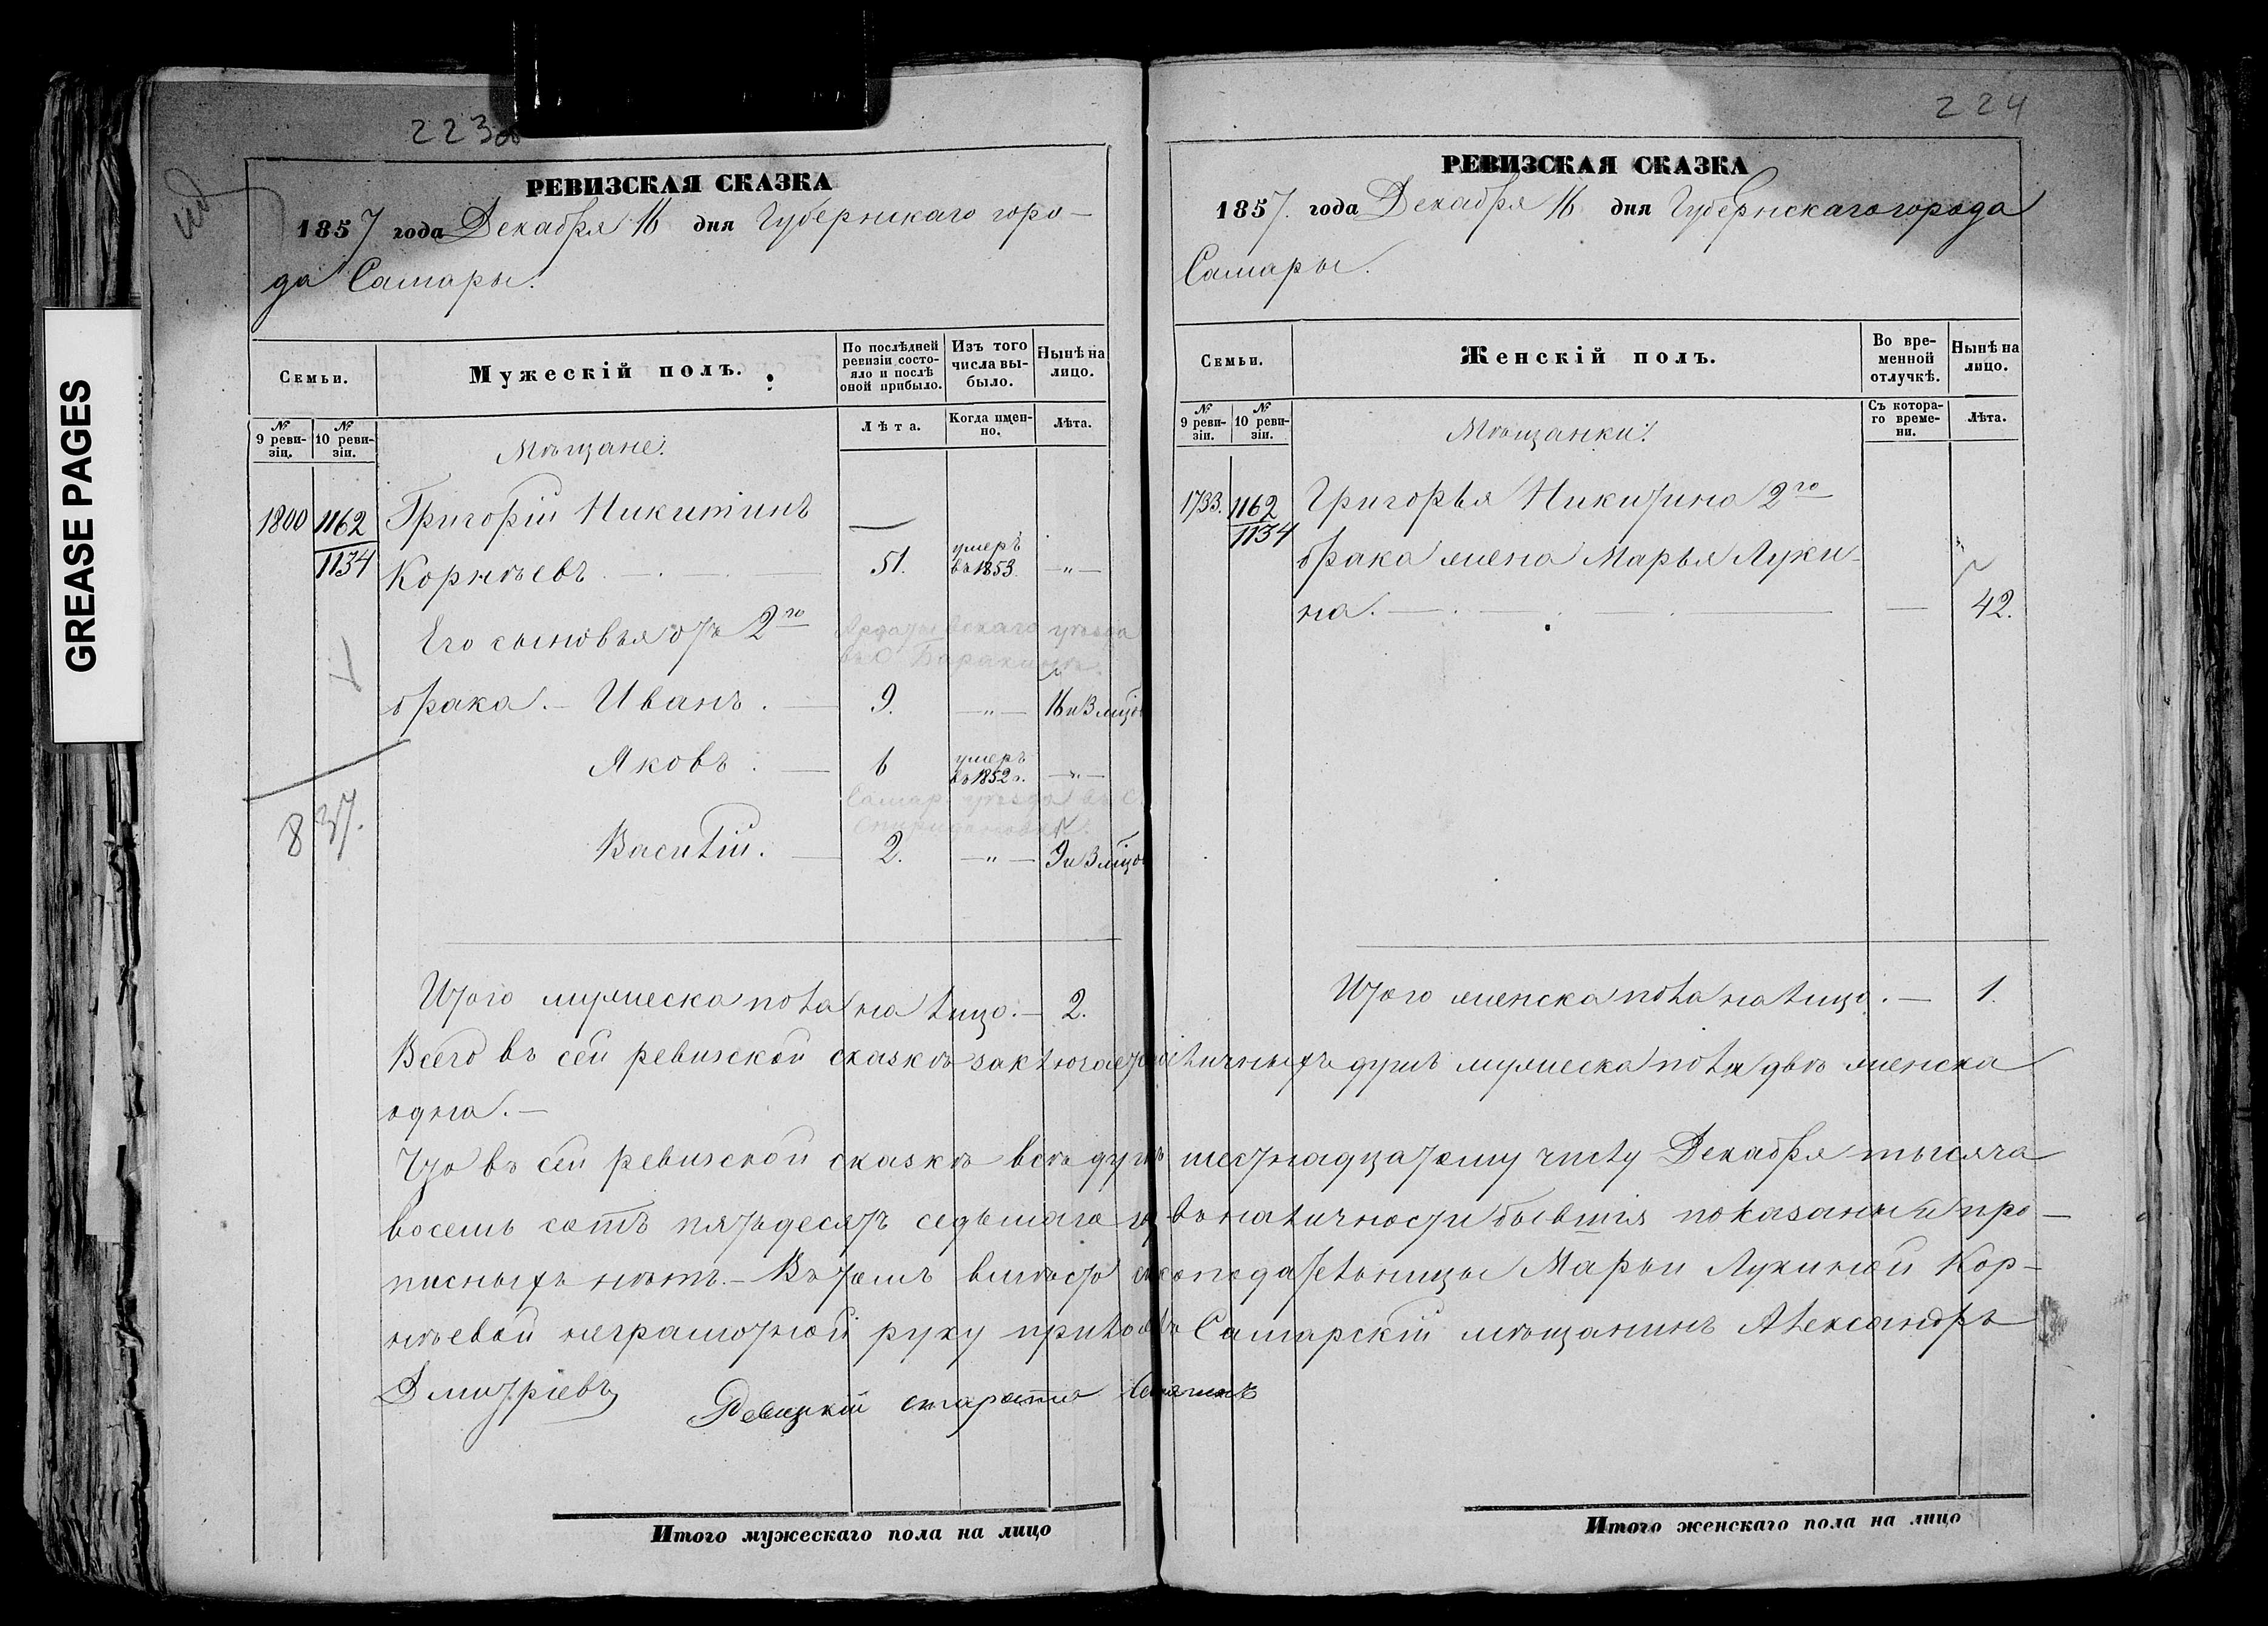 GREASE PAGES
223об
РЕВИЗСКАЯ СКАЗКА
1857 года Декабря 16 дня Губернскаго горо-
да Самары.
Семьи.
Мужескій полъ.
По послѣдней ревизіи состо-яло и послѣ оной прибыло.
Изъ того числа вы-было.
Нынѣ на лицо.
№ 9 реви-зіи.
№ 10 реви-зіи.
Лѣта.
Когда имен-но.
Лѣта.
Мѣщане:
1800 1162 Григорій Никитинъ
1134 Корнѣевъ 51. умеръ въ 1853. — " —
Его сыновья отъ 2го
Ардатовскаго уѣзда
въ С.
брака. Иванъ. 9. — " — 16 и 3 мѣцов
Яковъ. 6 умеръ въ 1852 г. — " —
Самар. уѣзда въ С.
Спиридоновкѣ.
8 37.
Василій. 2. — " — 9 и 3 мѣцов
Итого мужеска пола на лицо. — 2.
224
РЕВИЗСКАЯ СКАЗКА
1857. года Декабря 16 дня Губернскаго города
Самары.
Семьи.
Женскій полъ.
Во вре-менной отлучкѣ.
Нынѣ на лицо.
№ 9 реви-зіи.
№ 10 реви-зіи.
Съ котора-го време-ни.
Лѣта.
Мѣщанки:
1733. 1162 Григорья Никитина 2го
1134 брака жена Марья Луки-
на. — 42.
Итого женска пола на лицо. — 1.
Всего въ сей ревизской сказкѣ заключается личныхъ душъ мужеска пола двѣ женска
одна. —
Что въ сей ревизской сказкѣ всѣ душъ шестнадцатому числу Декабря тысяча
восемь сотъ пятьдесятъ седьмаго г. въ наличности бывшія показаны и про-
писныхъ нѣтъ. — Въ томъ вмѣсто сказкоподательницы Марьи Лукиной Кор-
нѣевой неграмотной руку приложилъ Самарскій мѣщанинъ Александръ
Дмитріевъ
Ревизкій староста
Итого мужескаго пола на лицо
Итого женскаго пола на лицо